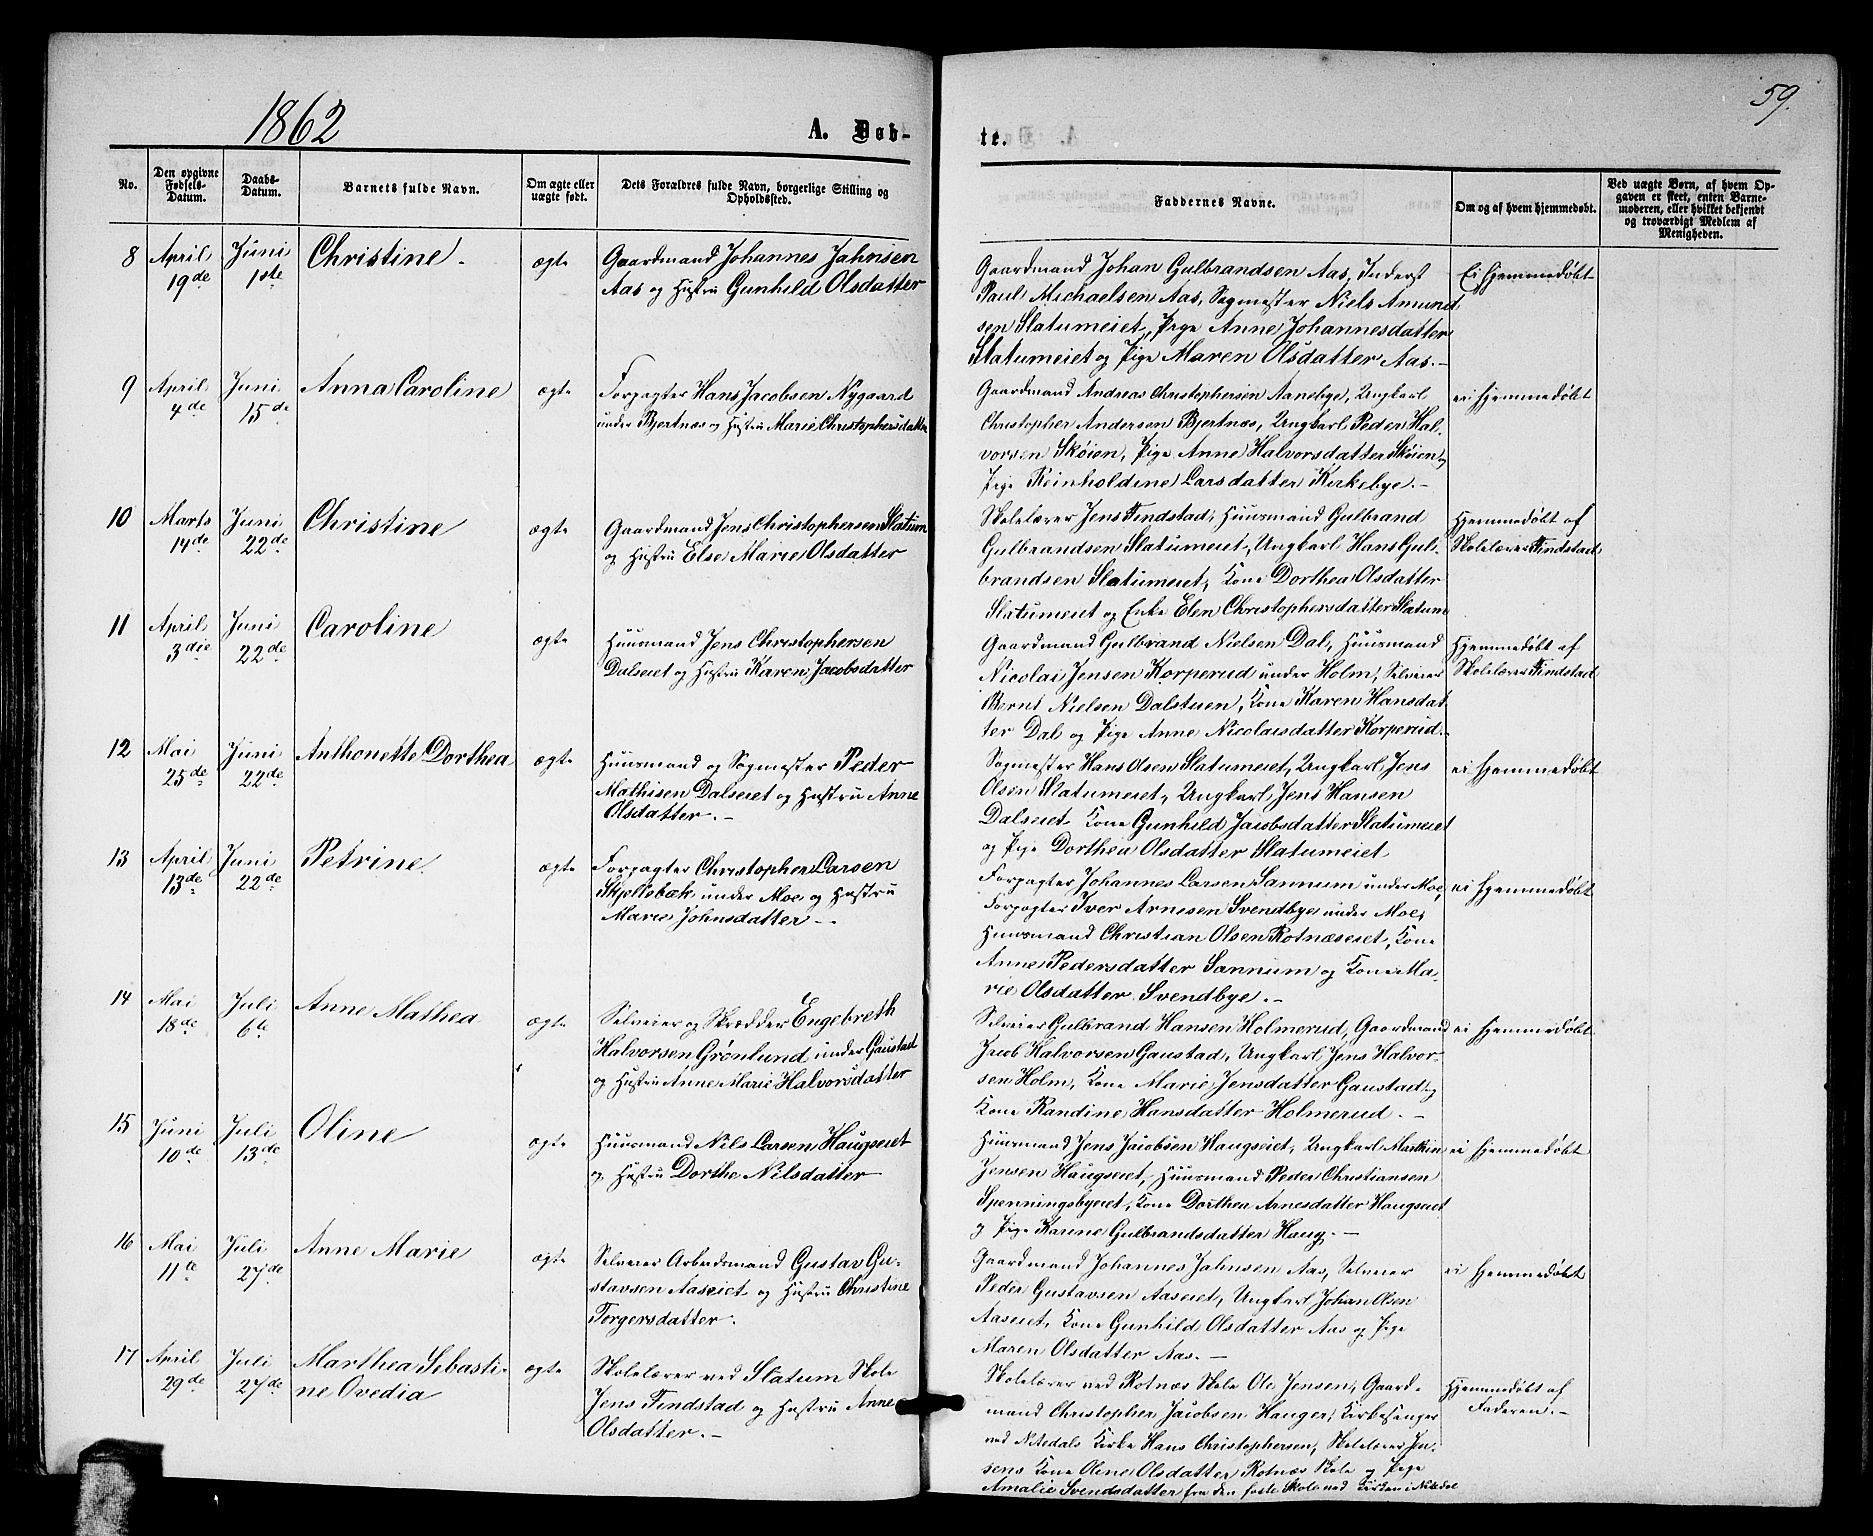 1862
A. Døb-
te.
59.
No.
Den opgivne Fødsels-Datum.
Daabs-Datum.
Barnets fulde Navn.
Om ægte eller uægte født.
Dets Forældres fulde Navn, borgerlige Stilling og Opholdssted.
Faddernes Navne.
Om og af hvem hjemmedøbt.
Ved uægte Børn, af hvem Opgaven er skeet, enten Barnemoderen, eller hvilket bekjendt og troværdigt Medlem af Menigheden.
8
April 19de
Juni 1ste
Christine
ægte
Gaardmand Johannes Jahnsen
Aas og Hustru Gunhild Olsdatter
Gaardmand Johan Gulbrandsen Aas, Inderst
Paul Michaelsen Aas, Sagmester Niels Amund-
sen Slatumeiet, Pige Anne Johannesdatter
Slatumeiet og Pige Maren Olsdatter Aas.-
Ei hjemmedøbt
9
April 4de
Juni 15de
Anna Caroline
ægte
Forpagter Hans Jacobsen Nygaard
under Bjertnæs og Hustru Marie Christophersdatter
Gaardmand Andreas Christophersen Aanebye, Ungkarl
Christopher Andersen Bjertnæs, Ungkarl Peder Hal-
vorsen Skøien, Pige Anne Halvorsdatter Skøien og
Pige Reinholdine Larsdatter Kirkebye.-
ei hjemmedøbt
10
Marts 14de
Juni 22de
Christine
ægte
Gaardmand Jens Christophersen Slatum
og Hustru Else Marie Olsdatter
Skolelærer Jens Findstad, Huusmand Gulbrand
Gulbrandsen Slatumeiet, Ungkarl Hans Gul-
brandsen Slatumeiet, Kone Dorthea Olsdatter
Slatumeiet og Enke Elen Christophersdatter Slatum
Hjemmedøbt af
Skolelærer Findstad
11
April 3die
Juni 22de
Caroline
ægte
Huusmand Jens Christophersen
Dalseiet og Hustru Karen Jacobsdatter
Gaardmand Gulbrand Nielsen Dal, Huusmand
Nicolai Jensen Korperud under Holm, Selveier
Bernt Nielsen Dalstuen, Kone Karen Hansdat-
ter Dal og Pige Anne Nicolaisdatter Korperud.-
Hjemmedøbt af
Skolelærer Findstad
12
Mai 25de
Juni 22de
Anthonette Dorthea
ægte
Huusmand og Sagmester Peder
Mathisen Dalseiet og Hustru Anne
Olsdatter.-
Sagmester Hans Olsen Slatumeiet, Ungkarl Jens
Olsen Slatumeiet, Ungkarl Jens Hansen
Dalseiet Kone Gunhild Jacobsdatter Slatumeiet
og Pige Dorthea Olsdatter Slatumeiet
ei hjemmedøbt
13
April 13de
Juni 22de
Petrine.
ægte
Forpagter Christopher Larsen
Skjellebæk under Moe og Hustru
Marie Johnsdatter.-
Forpagter Johannes Larsen Sannum under Moe,
Forpagter Iver Arnesen Svendbye under Moe,
Huusmand Christian Olsen Rotnæseiet, Kone
Anne Pedersdatter Sannum og Kone Ma-
rie Olsdatter Svendbye.-
ei hjemmedøbt
14
Mai 18de
Juli 6te
Anne Mathea
ægte
Selveier og Skrædder Engebreth
Halvorsen Grønlund under Gaustad
og Hustru Anne Marie Halvorsdatter
Selveier Gulbrand Hansen Holmerud, Gaardmand
Jacob Halvorsen Gaustad, Ungkarl Jens Halvor-
sen Holm, Kone Marie Jensdatter Gaustad og
Kone Randine Hansdatter Holmerud.-
ei hjemmedøbt
15
Juni 10de
Juli 13de
Oline
ægte
Huusmand Nils Larsen Haugseiet
og Hustru Dorthe Nilsdatter
Huusmand Jens Jacobsen Haugseiet, Ungkarl Mathias
Jensen Haugseiet, Huusmand Peder Christiansen
Spenningsbyeiet, Kone Dorthea Arnesdatter Haugseiet
og Pige Karine Gulbrandsdatter Haug.-
ei hjemmedøbt
16
Mai 11te
Juli 27de
Anne Marie
ægte
Selveier Arbeidsmand Gustav Gu-
stavsen Aaseiet og Hustru Christine
Torgersdatter.
Gaardmand Johannes Jahnsen Aas, Selveier
Peder Gustavsen Aaseiet, Ungkarl Johan Olsen
Aaseiet, Kone Gunhild Olsdatter Aas og Pige
Maren Olsdatter Aas.-
ei hjemmedøbt
17
April 29de
Juli 27de
Marthea Sebasti-
ne Ovedia
ægte
Skolelærer ved Slatum Skole
Jens Findstad og Hustru Anne
Olsdatter.-
Skolelærer ved Rotnæs Skole Ole Jensen, Gaard-
mand Christopher Jacobsen Hauger, Kirkesanger
ved Nitedals Kirke Hans Christophersen, Skolelærer Jen-
sens Kone Oline Olsdatter Rotnæs Skole og Pige
Amalie Svendsdatter fra den faste Skole ved Kirken i Nitedal
Hjemmedøbt af
Faderen.-